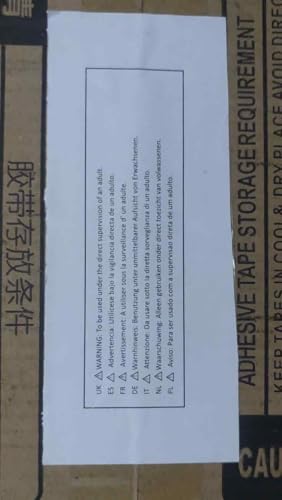 胶带存放条件
UK ⚠ WARNING: To be used under the direct supervision of an adult.
ES ⚠ Advertencia: Utilícese bajo la vigilancia directa de un adulto.
FR ⚠ Avertissement: A utiliser sous la surveillance d' un adulte.
DE ⚠ Warnhinweis: Benutzung unter unmittelbarer Aufsicht von Erwachsenen.
IT ⚠ Attenzione: Da usare sotto la diretta sorveglianza di un adulto.
NL ⚠ Waarschuwing: Alleen gebruiken onder direct toezicht van volwassenen.
PL ⚠ Aviso: Para ser usado com a supervisao direta de um adulto.
ADHESIVE TAPE STORAGE REQUIREMENT
KEEP TAPES IN COOL & DRY PLACE AVOID DIREC
CAU